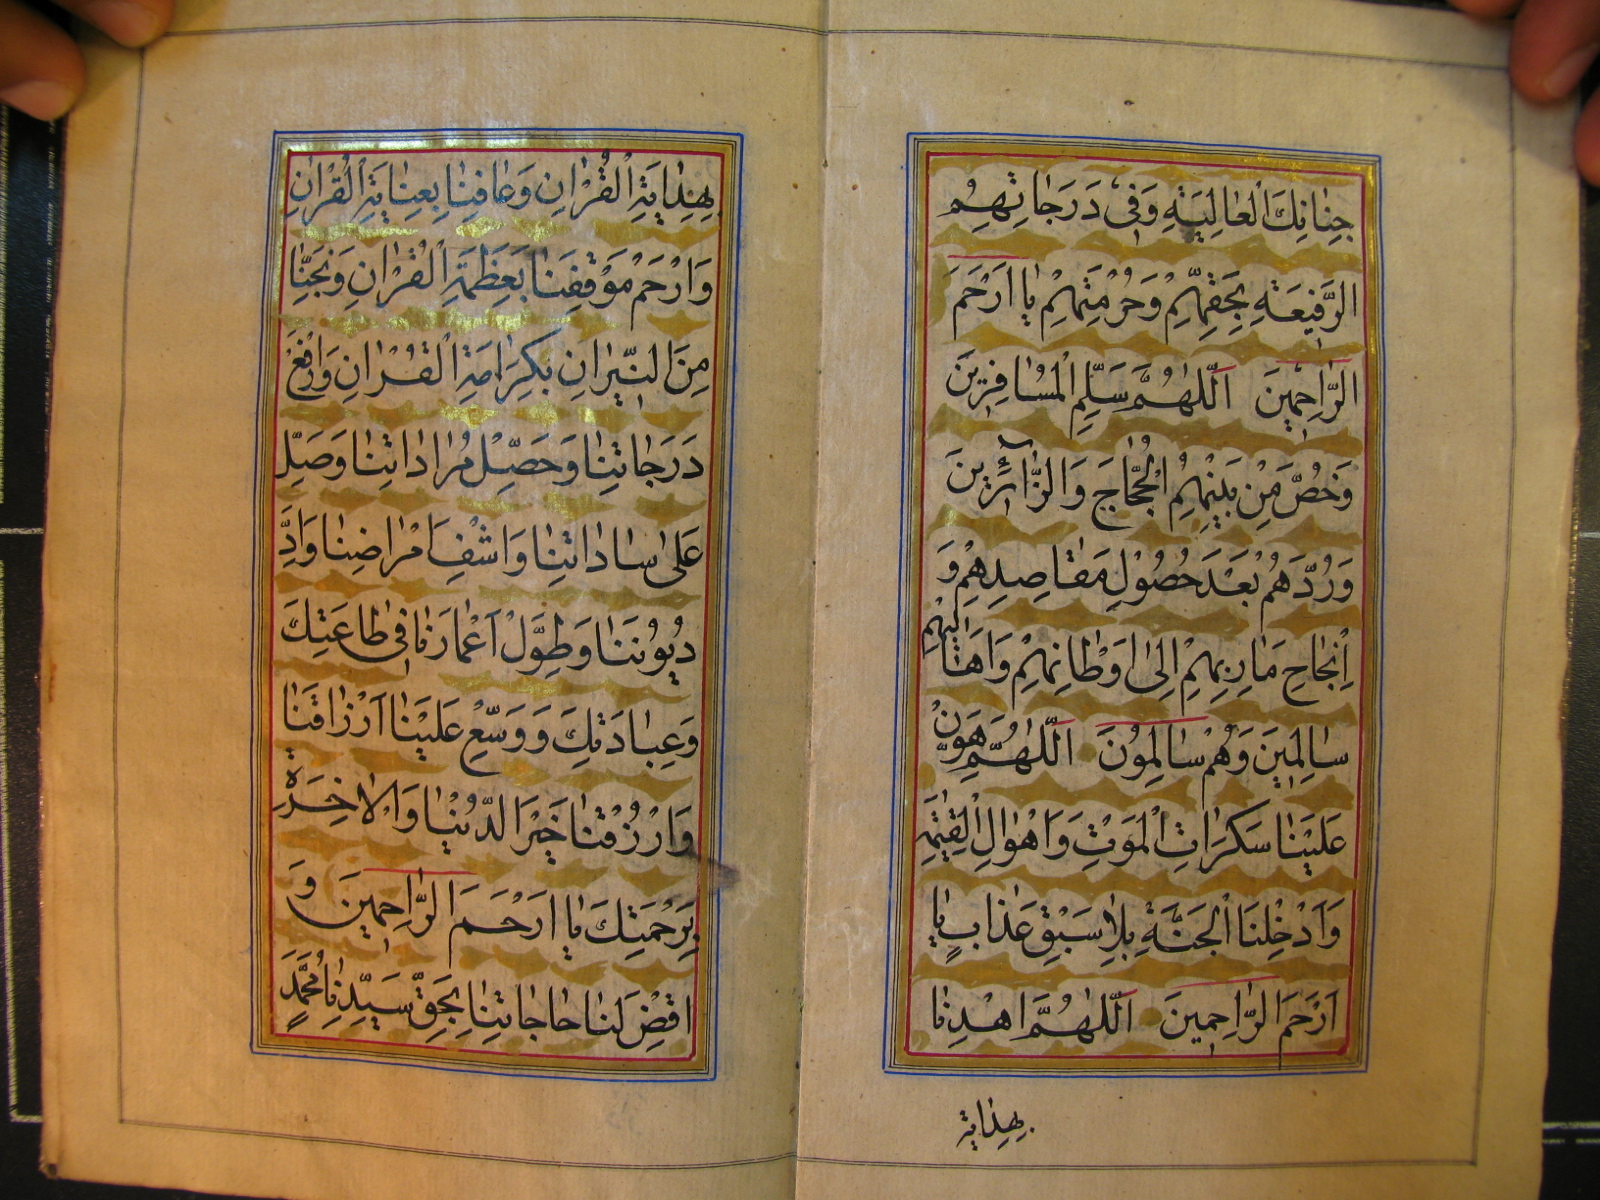 جِنَانِكَ الْعَالِيَةِ وَفِي دَرَجَاتِهِمُ
الرَّفِيعَةِ بِحَقِّهِمْ وَحُرْمَتِهِمْ يَا اَرْحَمَ
الرَّاحِمِينَ اَللّٰهُمَّ سَلِّمِ الْمُسَافِرِينَ
وَخُصَّ مِنْ بَيْنِهِمُ الْحُجَّاجَ وَالزَّآئِرِينَ
وَرُدَّهُمْ بَعْدَ حُصُولِ مَقَاصِدِهِمْ وَ
اِنْجَاحِ مَارِبِهِمْ اِلَى اَوْطَانِهِمْ وَاَهَالِيهِمْ
سَالِمِينَ وَهُمْ سَالِمُونَ اَللّٰهُمَّ هَوِّنْ
عَلَيْنَا سَكَرَاتِ الْمَوْتِ وَاَهْوَالِ الْقِيٰمَةِ
وَاَدْخِلْنَا الْجَنَّةَ بِلَا سَبْقِ عَذَابٍ يَا
اَرْحَمَ الرَّاحِمِينَ اَللّٰهُمَّ اهْدِنَا
بِهِدَايَةِ
بِهِدَايَةِ الْقُرْاٰنِ وَعَافِنَا بِعِنَايَةِ الْقُرْاٰنِ
وَارْحَمْ مَوْقِفَنَا بِعَظَمَةِ الْقُرْاٰنِ وَنَجِّنَا
مِنَ النِّيرَانِ بِكَرَامَةِ الْقُرْاٰنِ وَارْفَعْ
دَرَجَاتِنَا وَحَصِّلْ مُرَادَاتِنَا وَصَلِّ
عَلٰى سَادَاتِنَا وَاشْفِ اَمْرَاضِنَا وَاَدِّ
دُيُونَنَا وَطَوِّلْ اَعْمَارَنَا فِي طَاعَتِكَ
وَعِبَادَتِكَ وَوَسِّعْ عَلَيْنَا اَرْزَاقَنَا
وَارْزُقْنَا خَيْرَ الدُّنْيَا وَالْاٰخِرَةِ
بِرَحْمَتِكَ يَا اَرْحَمَ الرَّاحِمِينَ وَ
اقْضِ لَنَا حَاجَاتِنَا بِحَقِّ سَيِّدِنَا مُحَمَّدٍ